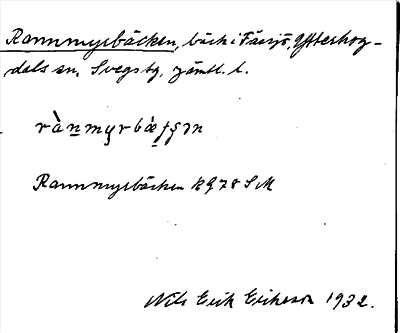 Rannmyrbäcken, bäck i Fåssjö, Ytterhog-
dals sn. Svegs tg. Jämtl. l.
rànmyrbæ̀ʃʃən
Rannmyrbäcken K 978 SM
Nils Erik Erikson 1932.